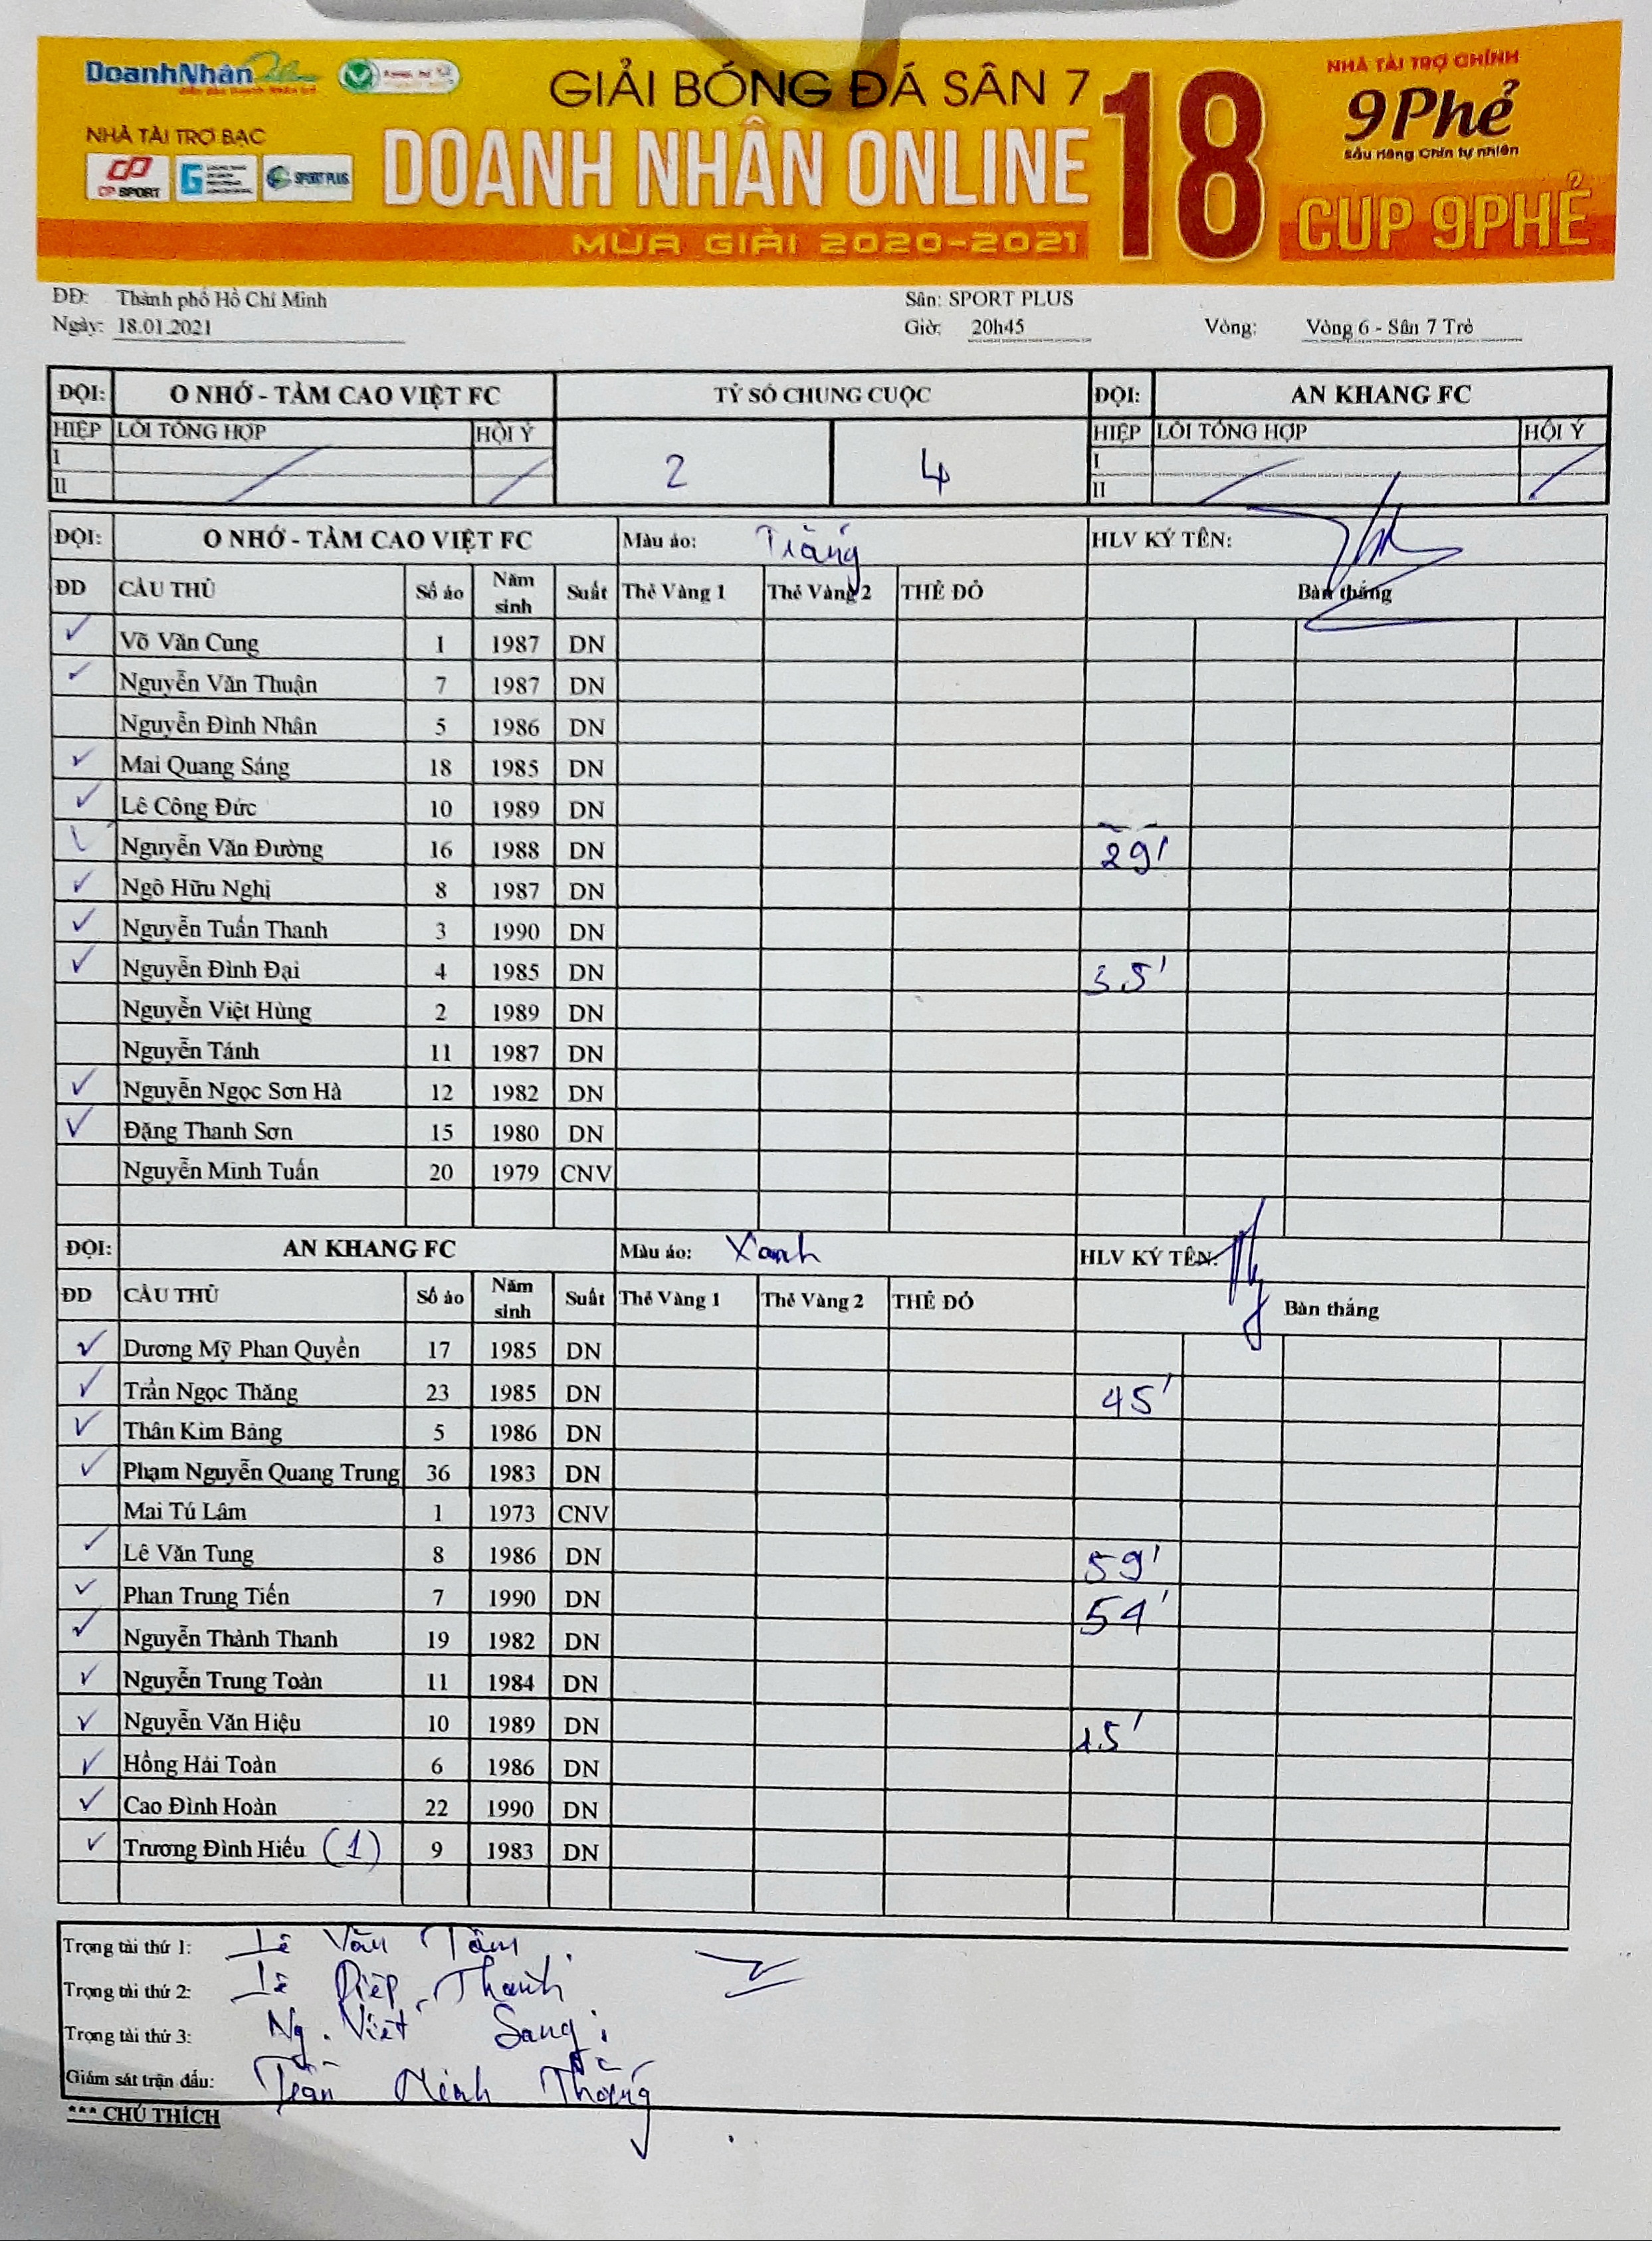 DoanhNhân Online
GIẢI BÓNG ĐÁ SÂN 7
NHÀ TÀI TRỢ CHÍNH
NHÀ TÀI TRỢ BẠC
DOANH NHÂN ONLINE
18
9Phẻ
Sầu riêng Chín tự nhiên
CP SPORT
G
SPORT PLUS
MÙA GIẢI 2020-2021
CUP 9PHẺ
ĐĐ: Thành phố Hồ Chí Minh Sân: SPORT PLUS
Ngày: 18.01.2021 Giờ: 20h45 Vòng: Vòng 6 - Sân 7 Trẻ
ĐỘI: O NHỚ - TẦM CAO VIỆT FC TỶ SỐ CHUNG CUỘC ĐỘI: AN KHANG FC
HIỆP LỖI TỔNG HỢP HỘI Ý 2 4 HIỆP LỖI TỔNG HỢP HỘI Ý
I I
II II
ĐỘI: O NHỚ - TẦM CAO VIỆT FC Màu áo: Trắng HLV KÝ TÊN:
ĐD CẦU THỦ Số áo Năm sinh Suất Thẻ Vàng 1 Thẻ Vàng 2 THẺ ĐỎ Bàn thắng
✓ Võ Văn Cung 1 1987 DN
✓ Nguyễn Văn Thuận 7 1987 DN
Nguyễn Đình Nhân 5 1986 DN
✓ Mai Quang Sáng 18 1985 DN
✓ Lê Công Đức 10 1989 DN
✓ Nguyễn Văn Đường 16 1988 DN 29'
✓ Ngô Hữu Nghị 8 1987 DN
✓ Nguyễn Tuấn Thanh 3 1990 DN
✓ Nguyễn Đình Đại 4 1985 DN 35'
Nguyễn Việt Hùng 2 1989 DN
Nguyễn Tánh 11 1987 DN
✓ Nguyễn Ngọc Sơn Hà 12 1982 DN
✓ Đặng Thanh Sơn 15 1980 DN
Nguyễn Minh Tuấn 20 1979 CNV
ĐỘI: AN KHANG FC Màu áo: Xanh HLV KÝ TÊN:
ĐD CẦU THỦ Số áo Năm sinh Suất Thẻ Vàng 1 Thẻ Vàng 2 THẺ ĐỎ Bàn thắng
✓ Dương Mỹ Phan Quyền 17 1985 DN
✓ Trần Ngọc Thăng 23 1985 DN 45'
✓ Thân Kim Bảng 5 1986 DN
✓ Phạm Nguyễn Quang Trung 36 1983 DN
Mai Tú Lâm 1 1973 CNV
✓ Lê Văn Tung 8 1986 DN 59'
✓ Phan Trung Tiến 7 1990 DN 54'
✓ Nguyễn Thành Thanh 19 1982 DN
✓ Nguyễn Trung Toàn 11 1984 DN
✓ Nguyễn Văn Hiệu 10 1989 DN 15'
✓ Hồng Hải Toàn 6 1986 DN
✓ Cao Đình Hoàn 22 1990 DN
✓ Trương Đình Hiếu (1) 9 1983 DN
Trọng tài thứ 1: Lê Văn Tâm
Trọng tài thứ 2: Lê Diệp Thanh
Trọng tài thứ 3: Ng. Viết Sang
Giám sát trận đấu: Trần Minh Thắng
*** CHÚ THÍCH